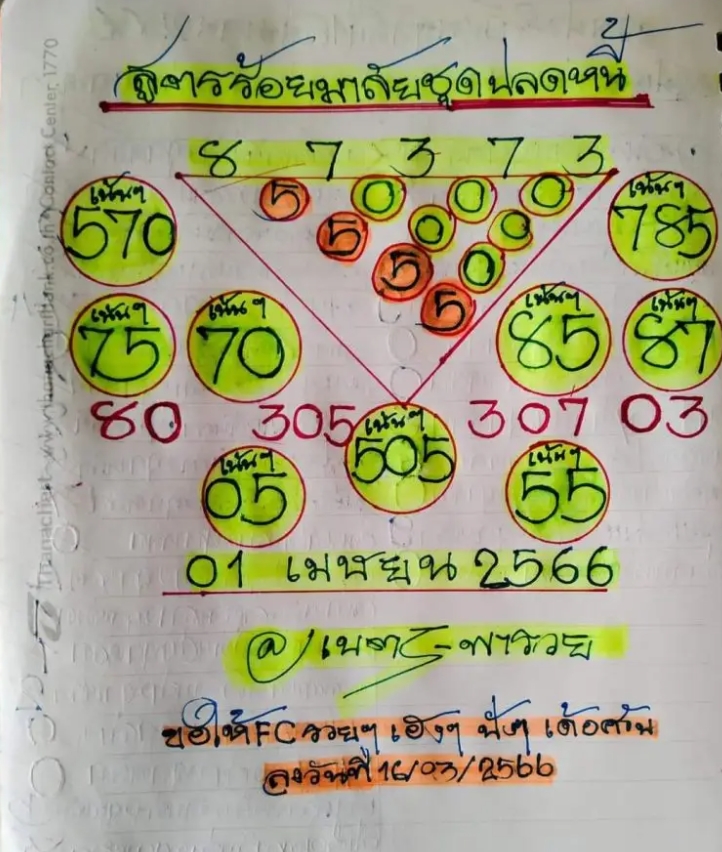 สูตรร้อยมาลัยชุดปลดหนี้
8 7 3 7 3
5 0 0 0
5 0 0
5 0
5
เน้นๆ
570
เน้นๆ
785
เน้นๆ
75
เน้นๆ
70
เน้นๆ
85
เน้นๆ
87
80 305 307 03
เน้นๆ
505
เน้นๆ
05
เน้นๆ
55
01 เมษายน 2566
ขอให้ FC รวยๆ เฮงๆ ปังๆ เด้อครับ
ลงวันที่ 16/03/2566
Thanachart www.thanachartbank.co.th Contact Center 1770